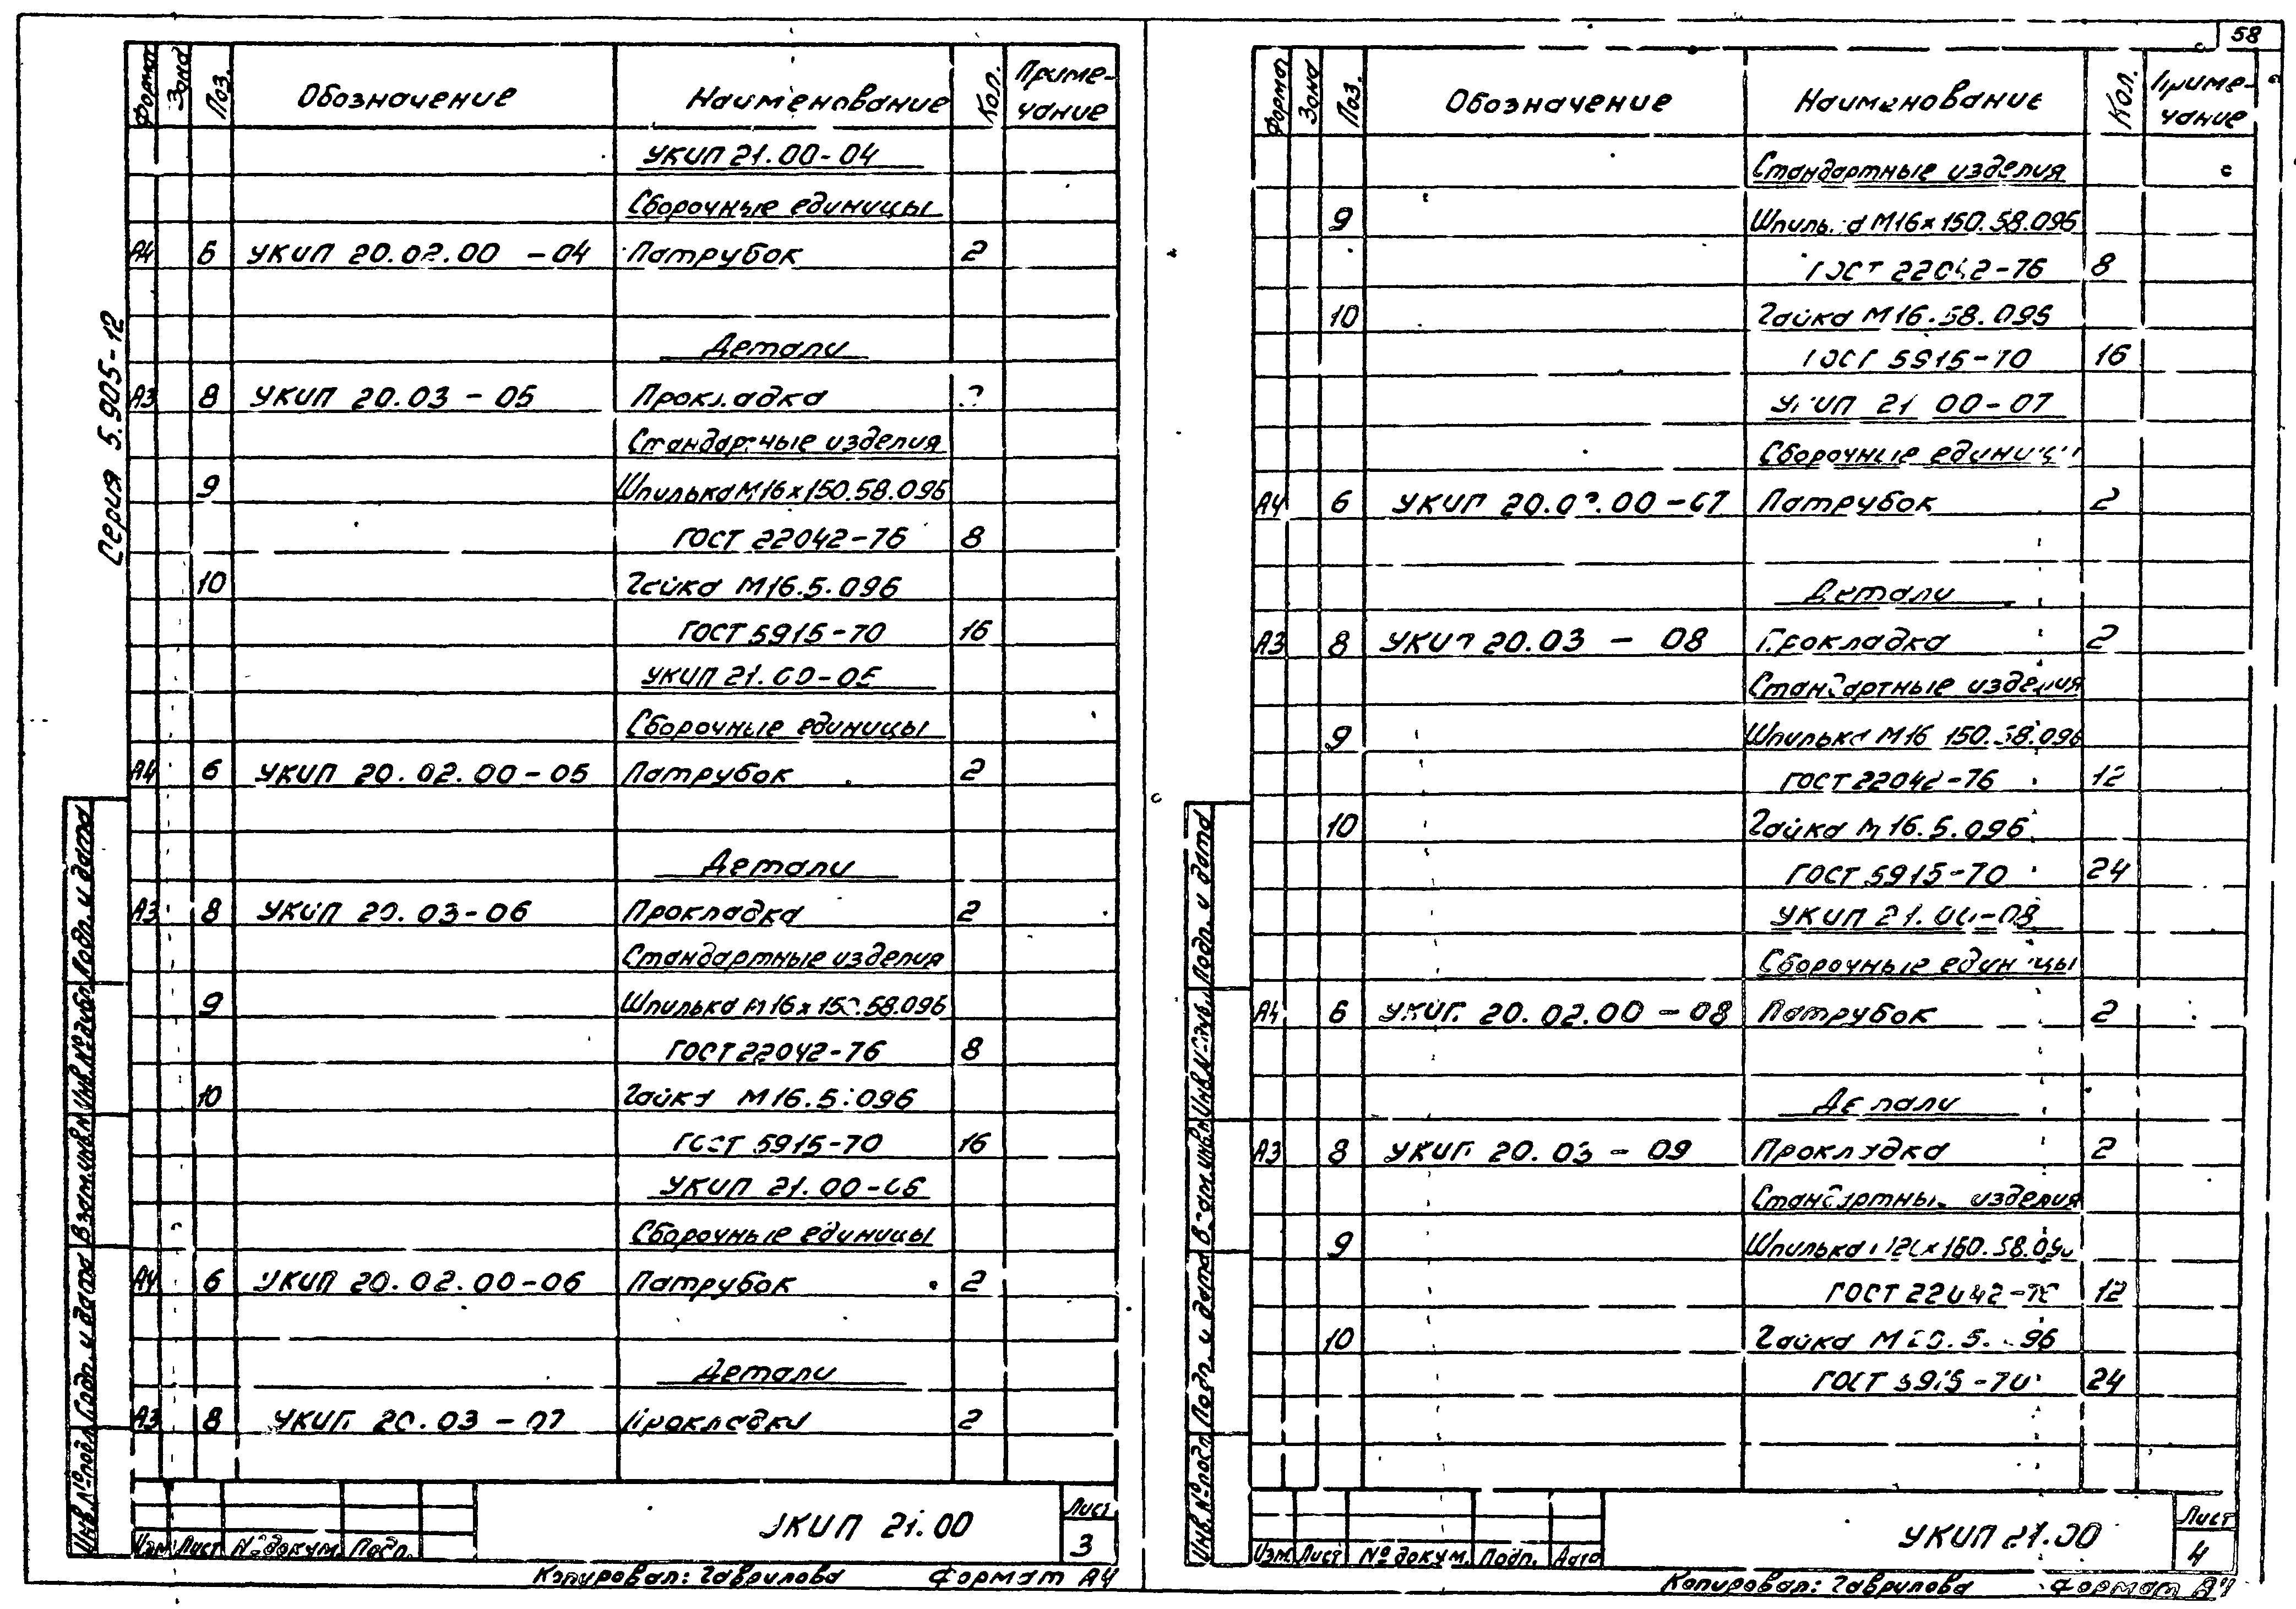 58
Серия 5.905-12
Формат Зона Поз. Обозначение Наименование Кол. Приме-
чание
УКИП 21.00-04
Сборочные единицы
А4 6 УКИП 20.02.00 -04 Патрубок 2
Детали
А3 8 УКИП 20.03 - 05 Прокладка
Стандартные изделия
9 Шпилька М16х150.58.096
ГОСТ 22042-76 8
10 Гайка М16.5.096
ГОСТ 5915-70 16
УКИП 21.00-05
Сборочные единицы
А4 6 УКИП 20.02.00-05 Патрубок 2
Детали
А3 8 УКИП 20.03-06 Прокладка 2
Стандартные изделия
9 Шпилька М16х150.58.096
ГОСТ 22042-76 8
10 Гайка М16.5.096
ГОСТ 5915-70 16
УКИП 21.00-06
Сборочные единицы
А4 6 УКИП 20.02.00-06 Патрубок 2
Детали
А3 8 УКИП 20.03 - 07 Прокладка 2
Инв.№подл. Подп. и дата Взам.инв.№ Инв.№дубл. Подп. и дата
Изм. Лист № докум. Подп.
УКИП 21.00
Лист
3
Копировал: Гаврилова Формат А4
Формат Зона Поз. Обозначение Наименование Кол. Приме-
чание
Стандартные изделия
9 Шпилька М16х150.58.096
ГОСТ 22042-76 8
10 Гайка М16.58.096
ГОСТ 5915-70 16
УКИП 21.00-07
Сборочные единицы
А4 6 УКИП 20.02.00-07 Патрубок 2
Детали
А3 8 УКИП 20.03 - 08 Прокладка 2
Стандартные изделия
9 Шпилька М16 150.58.096
ГОСТ 22042-76 12
10 Гайка М16.5.096
ГОСТ 5915-70 24
УКИП 21.00-08
Сборочные единицы
А4 6 УКИП 20.02.00 -08 Патрубок 2
Детали
А3 8 УКИП 20.03 - 09 Прокладка 2
Стандартные изделия
9 Шпилька М20х160.58.096
ГОСТ 22042-76 12
10 Гайка М20.5.096
ГОСТ 5915-70 24
Инв.№подл. Подп. и дата Взам.инв.№ Инв.№дубл. Подп. и дата
Изм. Лист № докум. Подп. Дата
УКИП 21.00
Лист
4
Копировал: Гаврилова Формат А4